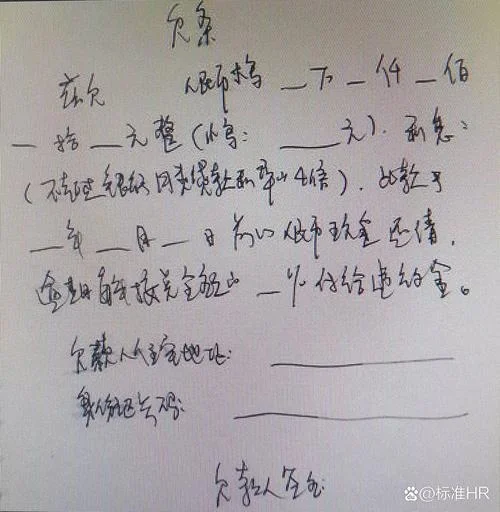 欠条
兹欠 人民币大写 _万_仟_佰
_拾_元整(小写: ___元). 利息:
(不超过银行同类贷款利率4倍). 此款于
_年_月_日前以人民币现金还清.
逾期自愿按总金额的_%付给违约金。
欠款人住宅地址: ______
身份证号码: ______
欠款人签字:
@标准HR